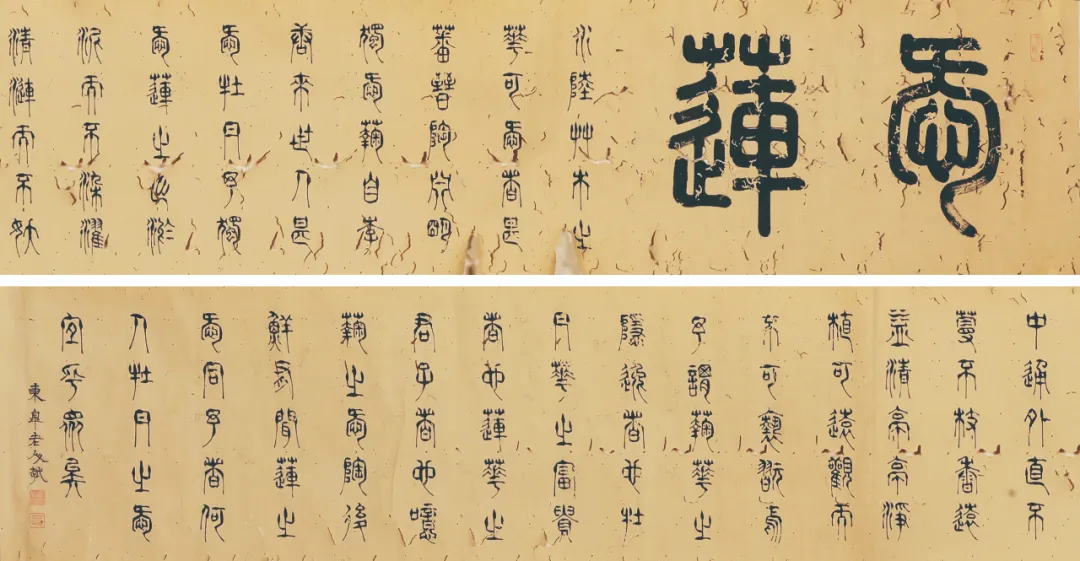 愛蓮
水陸艸木之
華可愛者甚
蕃晉陶淵明
獨愛菊自李
唐來世人甚
愛牡丹予獨
愛蓮之出淤
泥而不染濯
清漣而不妖
中通外直不
蔓不枝香遠
益清亭亭淨
植可遠觀而
不可褻翫焉
予謂菊華之
隱逸者也牡
丹華之富貴
者也蓮華之
君子者也噫
菊之愛陶後
鮮有聞蓮之
愛同予者何
人牡丹之愛
宜乎眾矣
東皐老